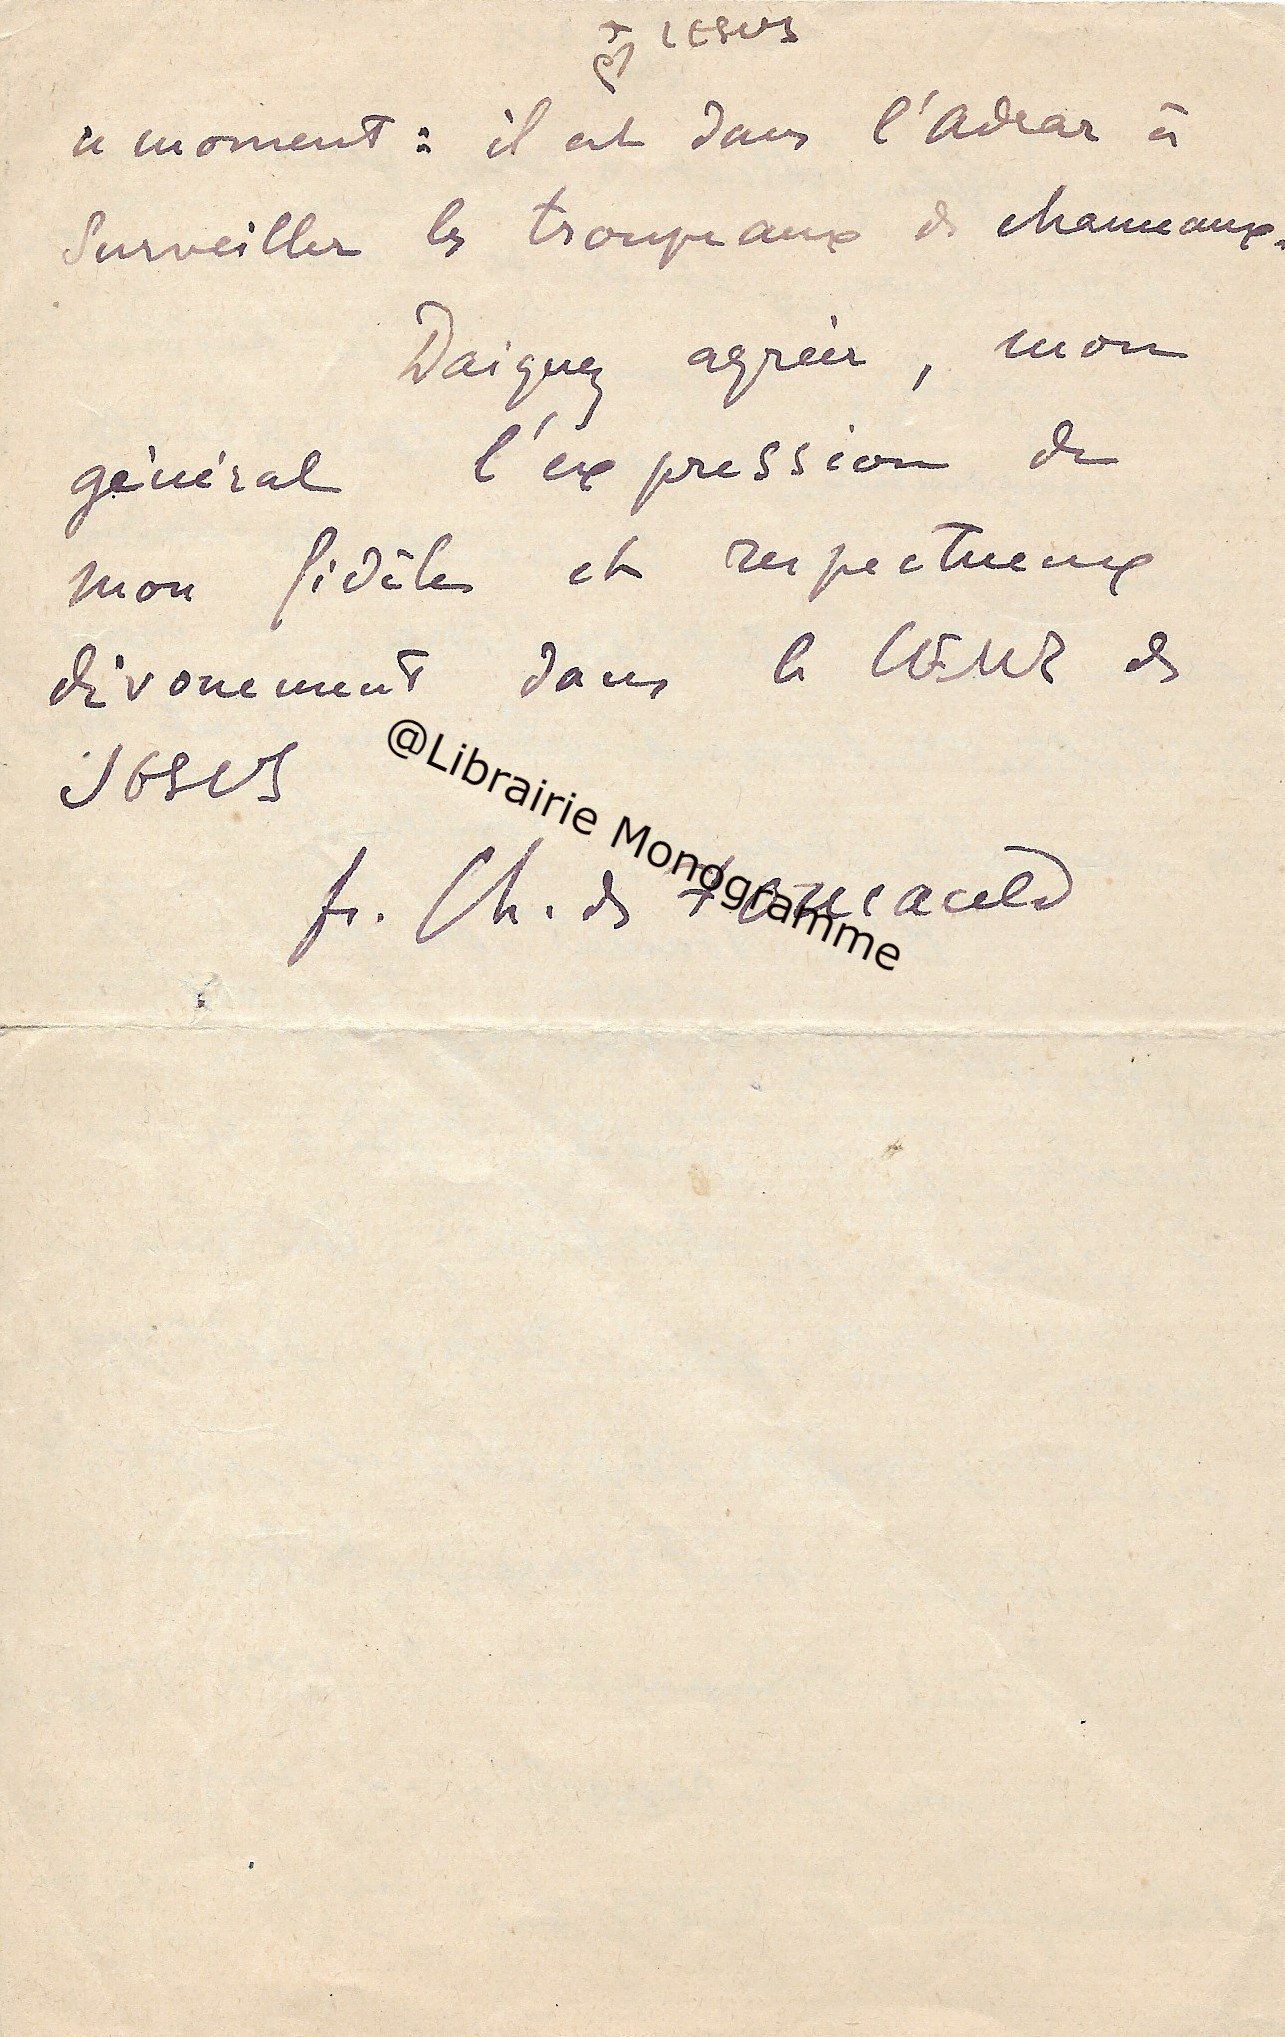 JESUS
ce moment : il est dans l'Adrar à
surveiller les troupeaux de chameaux.
Daignez agréer, mon
général l'expression de
mon fidèle et respectueux
dévouement dans le CŒUR de
JESUS
fr. Ch. de Foucauld
@Librairie Monogramme